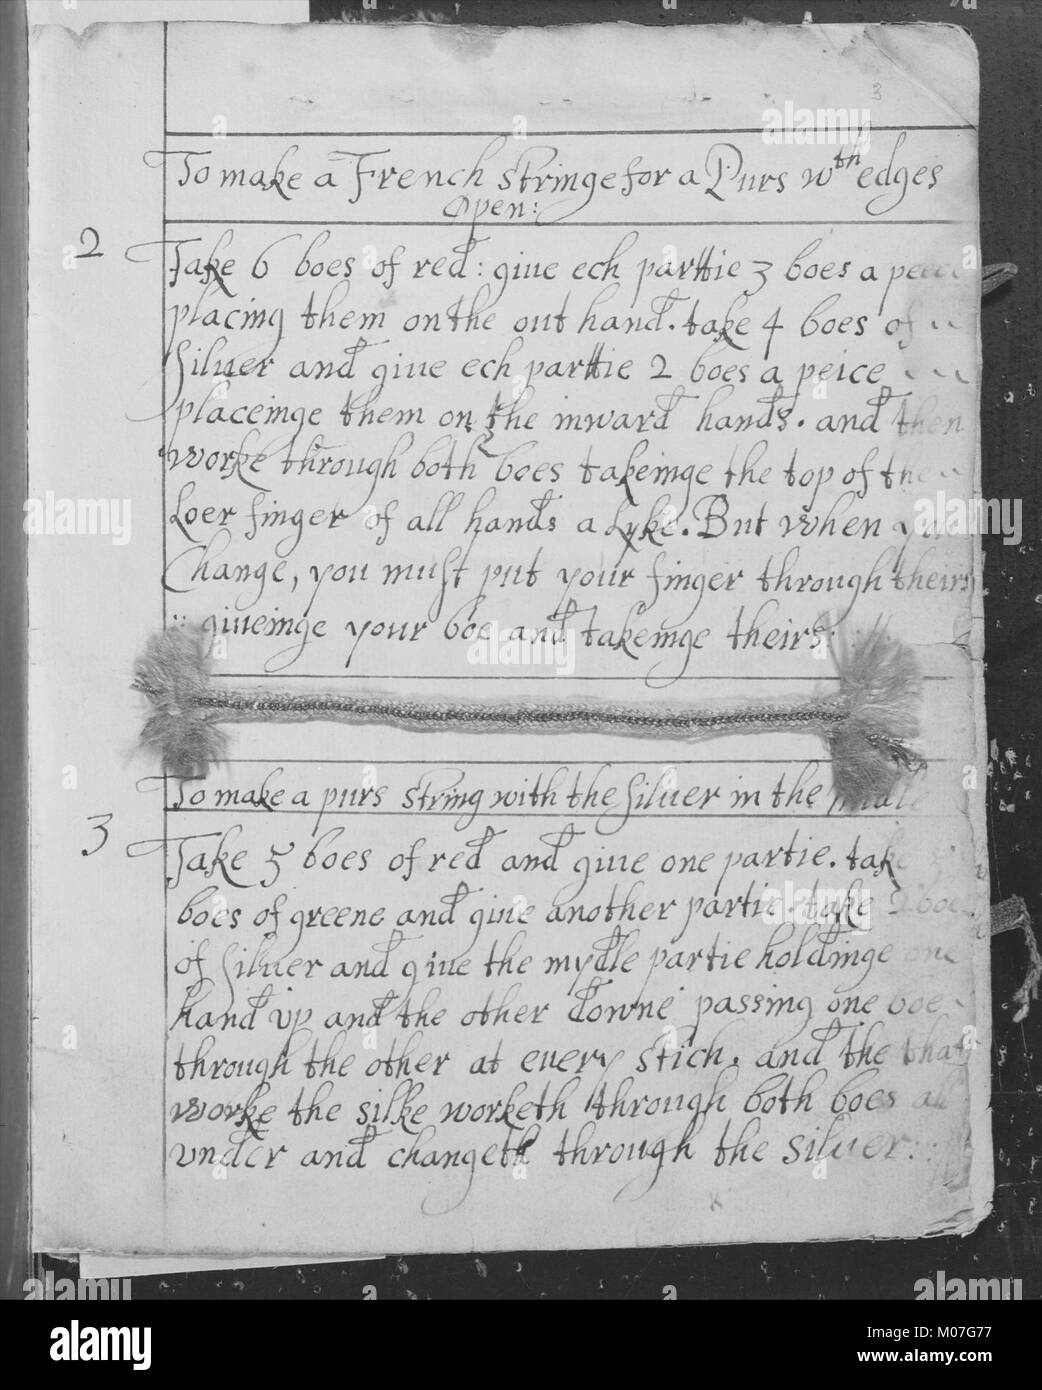 3
To make a French stringe for a Purs wth edges
Open:
2
Take 6 boes of red: giue ech partie 3 boes a peece
placing them on the out hand. take 4 boes of
Siluer and giue ech partie 2 boes a peice
placeinge them on the inward hands. and then
worke through both boes takeinge the top of the
Loer finger of all hands a Lyke. But when you
Change, you must put your finger through theirs
giueinge your boe and takeinge theirs:
To make a purs string with the siluer in the midle
3
Take 5 boes of red and giue one partie. take 5
boes of greene and giue another partie. take 2 boes
of siluer and giue the mydle partie holdinge one
hand vp and the other downe passing one boe
through the other at euery stich. and the that
worke the silke worketh through both boes
vnder and changeth through the siluer:
alamy
alamy stock photo
M07G77
www.alamy.com